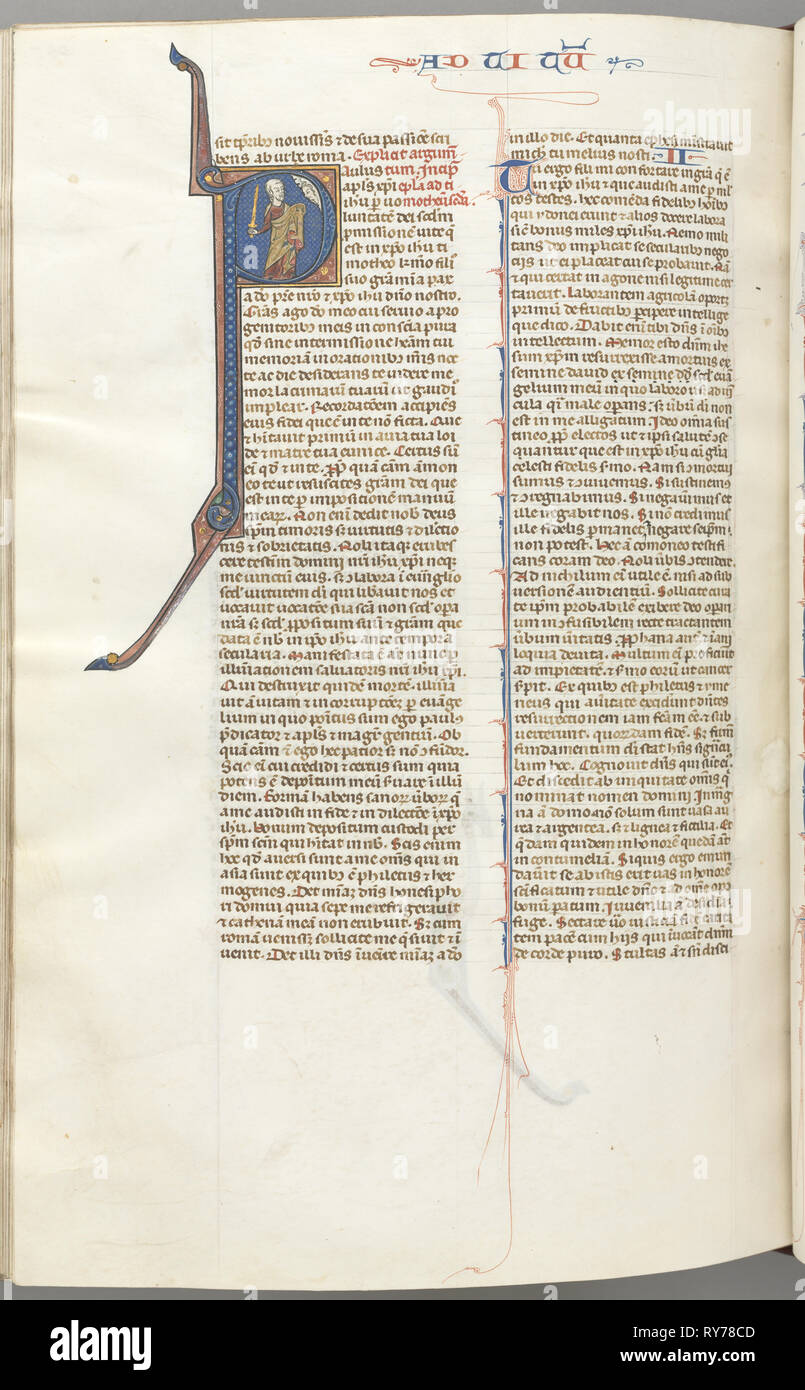 AD TI TM
sit tp̄rib; nouissīs ⁊ de sua passiōe scri
bens ab urbe roma. Explicit argum̄
aulus tum. Incip̄
apl̄s xp̄i epl̄a ad ti
ihū p uo motheū sc̄da.
luntatē dei scdm̄
p̄missionē uite q̄
est in xp̄o ihū ti
motheo kmo filio
suo gr̄a mīa pax
a dō pr̄e nr̄o ⁊ xp̄o ihū dn̄o nostro.
Gr̄as ago dō meo cui seruio a pro
genitoribꝰ meis in consc̄ia pura
qd̄ sine intermissione habeā tui
memoriā in orationibꝰ m̄is noc
te ac die desiderans te uidere me
mor lacrimarū tuarū ut gaudio
implear. Recordatōem accipiens
eius fidei que ē in te nō ficta. Que
⁊ hītauit primū in auia tua loi
de ⁊ matre tua eunice. Certus sū
eī qd̄ ⁊ in te. Propt̄ quā cām āmon
eo te ut resuscites gr̄am dei que
est in te p impositionē manuū
mearꝝ. Non enī dedit nob̄ deus
sp̄m timoris sꝫ uirtutis ⁊ dilectio
nis ⁊ sobrietatis. Noli itaqꝫ erubes
cere testim̄ domini nr̄i ihū xp̄i neqꝫ
me uinctū eius. sꝫ ↄlabora ī euāglio
scd̄ uirtutem dī qui libauit nos et
uocauit uocatōe sua sc̄a non scd̄ opa
nr̄a sꝫ scd̄ p̄positum suū ⁊ gr̄am que
data ē nob̄ in xp̄o ihū ante tempora
secularia. Manifestata ē aūt nunc p
illūationem saluatoris nr̄i ihū xp̄i.
Qui destruxit quidē mortē. illūia
uit aū uitam ⁊ incorruptōez p euāge
lium in quo positus sum ego paulꝰ
p̄dicator ⁊ apl̄s ⁊ magr̄ gentiū. Ob
quā cām ⁊ ego hec patior sꝫ nō ↄfūdor.
Scio eī cui credidi ⁊ certus sum quia
potens ē depositum meū s̄uare ī illū
diem. Formā habens sanorꝝ ūborꝝ q̄
a me audisti in fide ⁊ in dilectōe ī xp̄o
ihū. bonum depositum custodi per
sp̄m sc̄m qui hītat in nob̄. Scis enim
hoc qd̄ auersi sunt a me om̄s qui in
asia sunt ex quibꝰ ē philetus ⁊ her
mogenes. Det mīaꝫ dn̄s honesipho
ri domui quia sepe me refrigerauit
⁊ cathenā meā non erubuit. Sꝫ cum
romā uenissꝫ sollicite me q̄siuit ⁊ ī
uenit. Det illi dn̄s īuenire mīaꝫ a dō
in illo die. Et quanta ephesi ministrauit
michi tu melius nosti. II
Tu ergo fili mi confortare in gr̄a q̄ ē
in xp̄o ihū ⁊ que audisti a me p ml̄
tos testes. hec comēda fidelibꝰ hoīb;
qui ydonei erunt ⁊ alios docere labora
sic̄ bonus miles xp̄i ihū. Nemo mili
tans deo implicat se secularibꝰ nego
ciis ut ei placeat cui se probauit. Nā
⁊ qui certat in agone nisi legitime cer
tauerit. Laborantem agricolā oportꝫ
primū de fructibꝰ pcipere intellige
que dico. Dabit enī tibi dn̄s ī oībꝰ
intellectum. Memor esto dn̄m ihm̄
sum xp̄m resurrexisse a mortuis ex
semine dauid ex semine dd̄ scd̄ euā
gelium meū in quo laboro usqꝫ ad uī
cula qi male operans: sꝫ ūbū dī non
est in me alligatum. Ideo omīa sus
tineo ppt̄ electos ut ⁊ ipsi salutē ↄse
quantur que est in xp̄o ihū cū gl̄ia
celesti fidelis s̄mo. Nam si ↄmortui
sumus ⁊ ↄuiuemus. Si sustinemus
⁊ ↄregnabimus. Si negauīmus et
ille negabit nos. Si nō credimus
ille fidelis pmanet, negare seip̄m
non potest. Hec āmoneo testifi
cans coram deo. Noli ūbis ↄtendere.
Ad nichilum enī utile ē nisi ad sub
uersionē audientiū. Sollicite cura
te ip̄m probabilē exibere deo opari
um inↄfusibilem recte tractantem
ūbum ūitatis. Prophana aut̄ ⁊ inani
loquia deuita. Multum enī proficiunt
ad impietatē. ⁊ s̄mo eorū ut cancer
s̄pit. Ex quibꝰ est philetus ⁊ yme
neus qui a ūitate exciderunt dicētes
resurrectionem iam fc̄am eē. ⁊ sub
uerterunt. quorumdam fidē. Sꝫ firmū
fundamentum dī stat hn̄s signacu
lum hoc. Cognouit dn̄s qui sunt ei.
Et discedit ab iniquitate om̄is q̄
nominat nomen domini. In mag
na aū domo nō solum sunt uasa au
rea ⁊ argentea. sꝫ ⁊ lignea ⁊ fictilia. Et
q̄dam quidem in honorē quedā aūt
in contumeliā. Si quis ergo emun
dauit se ab istis erit uas in honorē
sc̄ificatum ⁊ utile dn̄o ⁊ ad om̄e opꝰ
bonū paratum. Iuuenilia aū desideria
fuge. Sectare ūo iusticiā fidē carita
tem pacē cum hiis qui īuocāt dn̄m
de corde puro. Stultas aū ⁊ sn̄ disci
alamy
Image ID: RY78CD
www.alamy.com